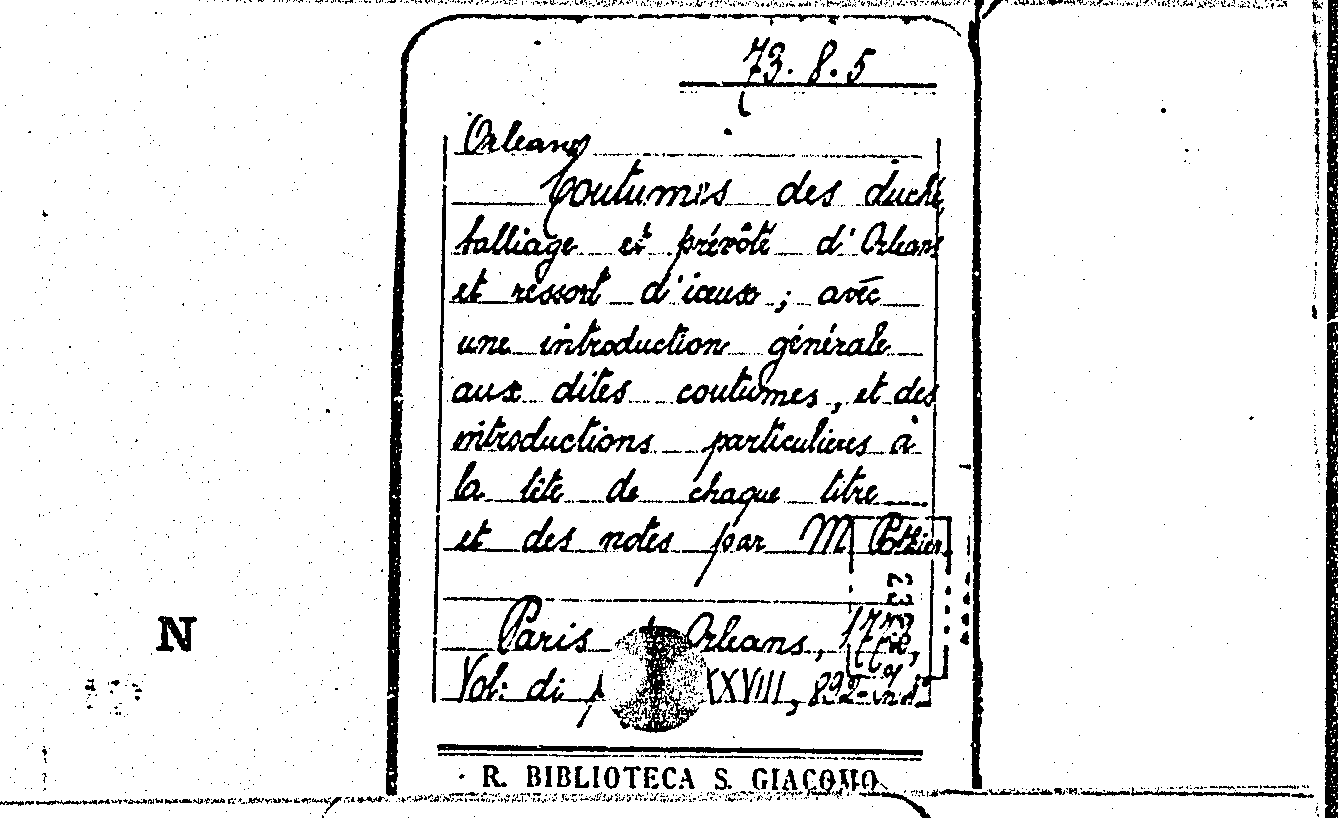 73. 8. 5
Orleans
Coutumes des duché,
balliage et prévôté d'Orleans
et ressort d'iceux ; avec
une introduction générale
aux dites coutumes, et des
introductions particulieres à
la tête de chaque titre
et des notes par M Pothier.
23
Paris Orleans,
Vol. di XXVIII, 892-
N
R. BIBLIOTECA S. GIACOMO